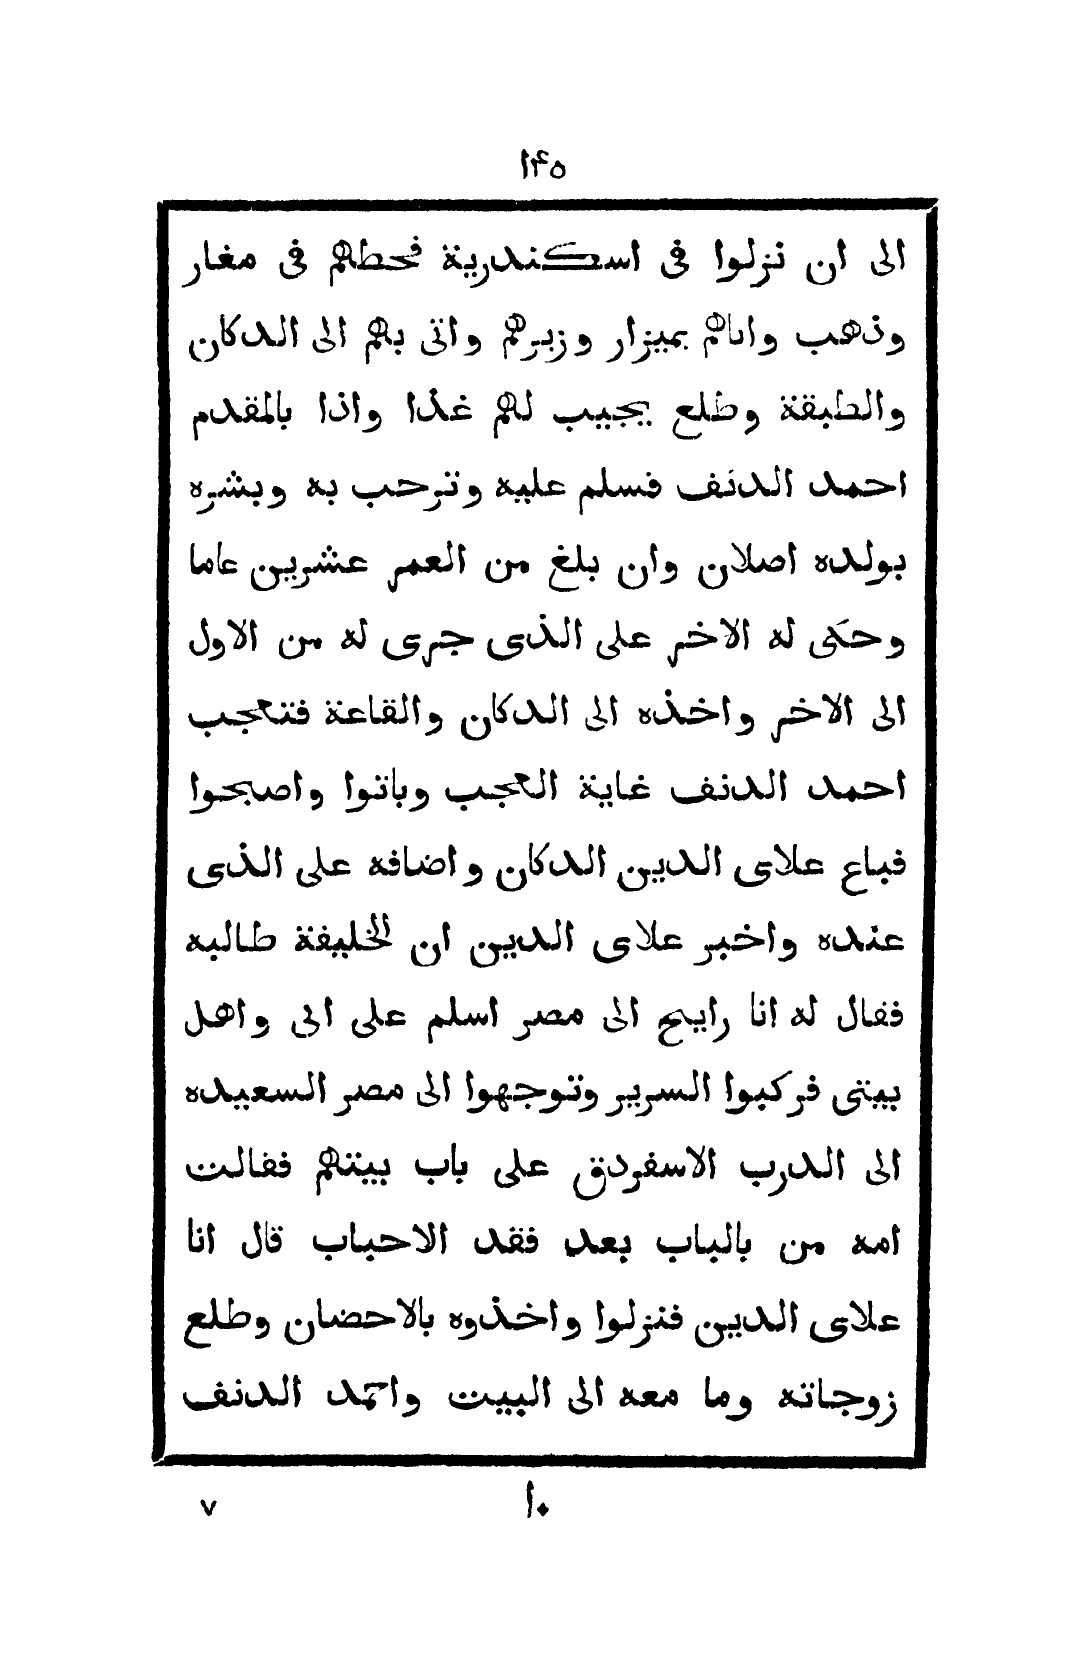 ١٤٥
الى ان نزلوا فى اسكندرية فحطهم فى مغار
وذهب واتاهم بميزار وزيرهم واتى بهم الى الدكان
والطبقة وطلع يجيب لهم غذا واذا بالمقدم
احمد الدنف فسلم عليه وترحب به وبشره
بولده اصلان وان بلغ من العمر عشرين عاما
وحكى له الاخر على الذى جرى له من الاول
الى الاخر واخذه الى الدكان والقاعة فتعجب
احمد الدنف غاية العجب وباتوا واصبحوا
فباع علاى الدين الدكان واضافه على الذى
عنده واخبر علاى الدين ان الخليفة طالبه
فقال له انا رايح الى مصر اسلم على ابى واهل
بيتى فركبوا السرير وتوجهوا الى مصر السعيده
الى الدرب الاسفردق على باب بيتهم فقالت
امه من بالباب بعد فقد الاحباب قال انا
علاى الدين فنزلوا واخذوه بالاحضان وطلع
زوجاته وما معه الى البيت واحمد الدنف
١٠
٧